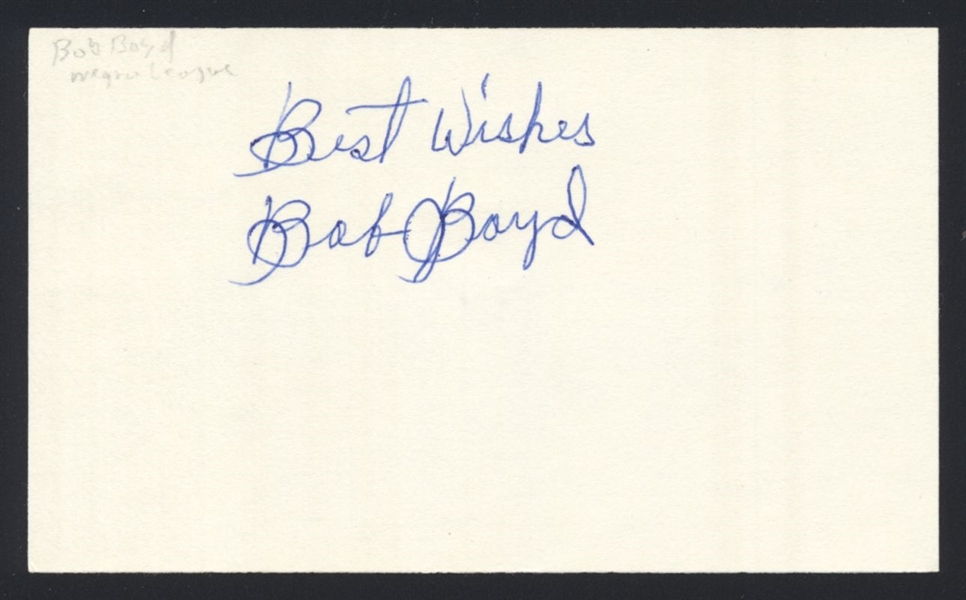 Bob Boyd
Negro League
Best Wishes
Bob Boyd